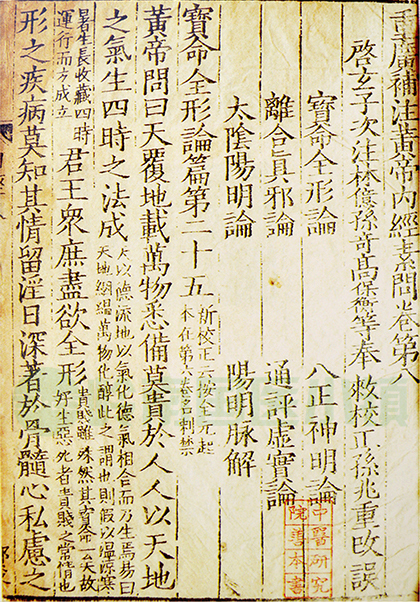 重廣補注黃帝內經素問卷第八
啓玄子次注林億孫竒高保衡等奉敕校正孫兆重改誤
寶命全形論　八正神明論
離合眞邪論　通評虛實論
太陰陽明論　陽明脉解
寶命全形論篇第二十五
新校正云按全元起
本在第六卷名刺禁
黃帝問曰天覆地載萬物悉備莫貴於人人以天地
之氣生四時之法成
天以德流地以氣化德氣相合而乃生焉易曰
天地絪縕萬物化醇此之謂也則假以溫凉寒
暑生長收藏四時
運行而方成立
君王衆庶盡欲全形
貴賤雖殊然其寶命一矣故
好生惡死者貴賤之常情也
形之疾病莫知其情留淫日深著於骨髓心私慮之
中醫研究
院善本書